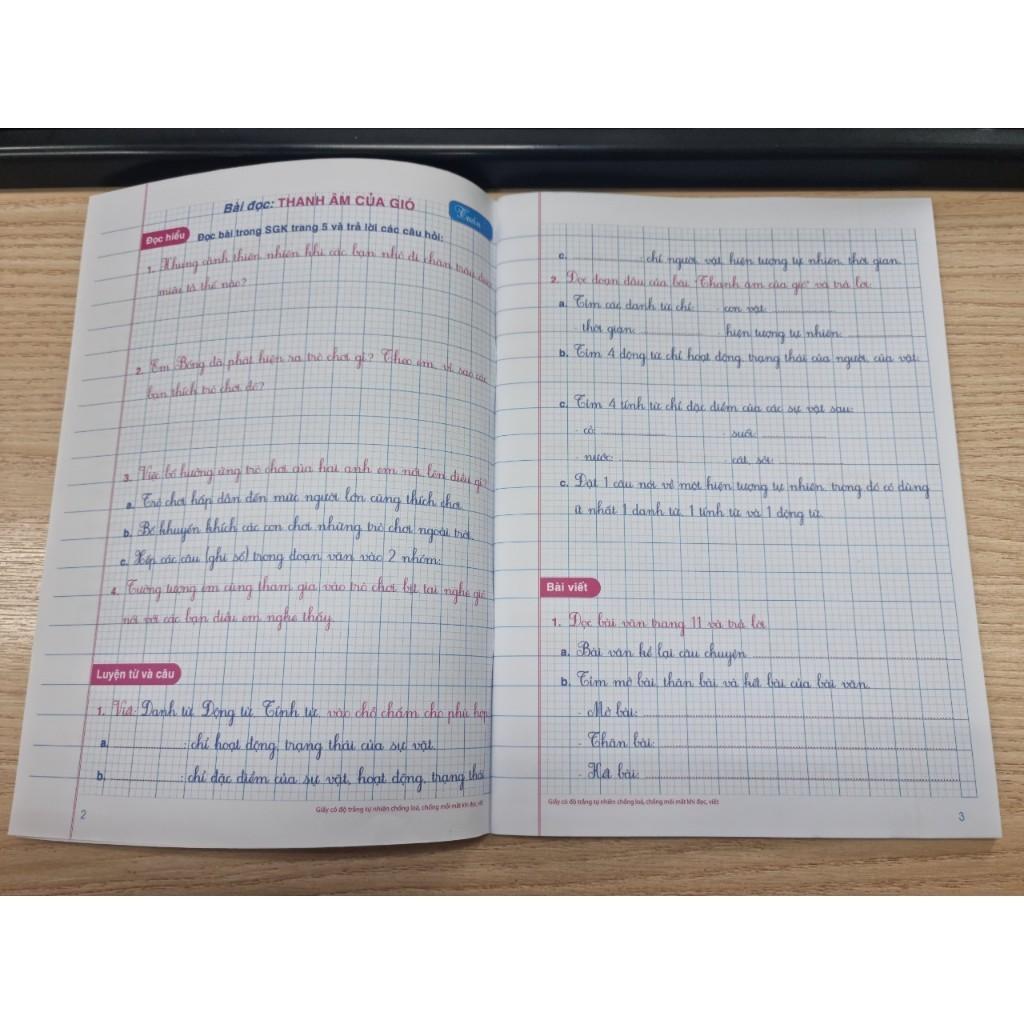 Bài đọc: THANH ÂM CỦA GIÓ
Tuần
Đọc hiểu Đọc bài trong SGK trang 5 và trả lời các câu hỏi:
1. Khung cảnh thiên nhiên khi các bạn nhỏ đi chăn trâu
như là thế nào?
2. Em Bống đã phát hiện ra trò chơi gì? Theo em, vì sao các
bạn thích trò chơi đó?
3. Việc bố hưởng ứng trò chơi của hai anh em nói lên điều gì?
a. Trò chơi hấp dẫn đến mức người lớn cũng thích chơi.
b. Bố khuyến khích các con chơi những trò chơi ngoài trời.
c. Xếp các câu (ghi số) trong đoạn văn vào 2 nhóm:
4. Tưởng tượng em cũng tham gia vào trò chơi bịt tai nghe gió
nói với các bạn điều em nghe thấy.
Luyện từ và câu
1. Viết Danh từ, Động từ, Tính từ, vào chỗ chấm cho phù hợp
a. : chỉ hoạt động, trạng thái của sự vật.
b. : chỉ đặc điểm của sự vật, hoạt động, trạng thái
Giấy có độ trắng tự nhiên chống loá, chống mỏi mắt khi đọc, viết
2
c. : chỉ người, vật, hiện tượng tự nhiên, thời gian.
2. Đọc đoạn đầu của bài "Thanh âm của gió" và trả lời
a. Tìm các danh từ chỉ: - con vật:
- thời gian: - hiện tượng tự nhiên:
b. Tìm 4 động từ chỉ hoạt động, trạng thái của người, của vật:
c. Tìm 4 tính từ chỉ đặc điểm của các sự vật sau:
- cỏ: - suối:
- nước: - cát, sỏi:
c. Đặt 1 câu nói về một hiện tượng tự nhiên, trong đó có dùng
ít nhất 1 danh từ, 1 tính từ và 1 động từ.
Bài viết
1. Đọc bài văn trang 11 và trả lời
a. Bài văn kể lại câu chuyện
b. Tìm mở bài, thân bài và kết bài của bài văn.
- Mở bài:
- Thân bài:
- Kết bài:
Giấy có độ trắng tự nhiên chống loá, chống mỏi mắt khi đọc, viết
3